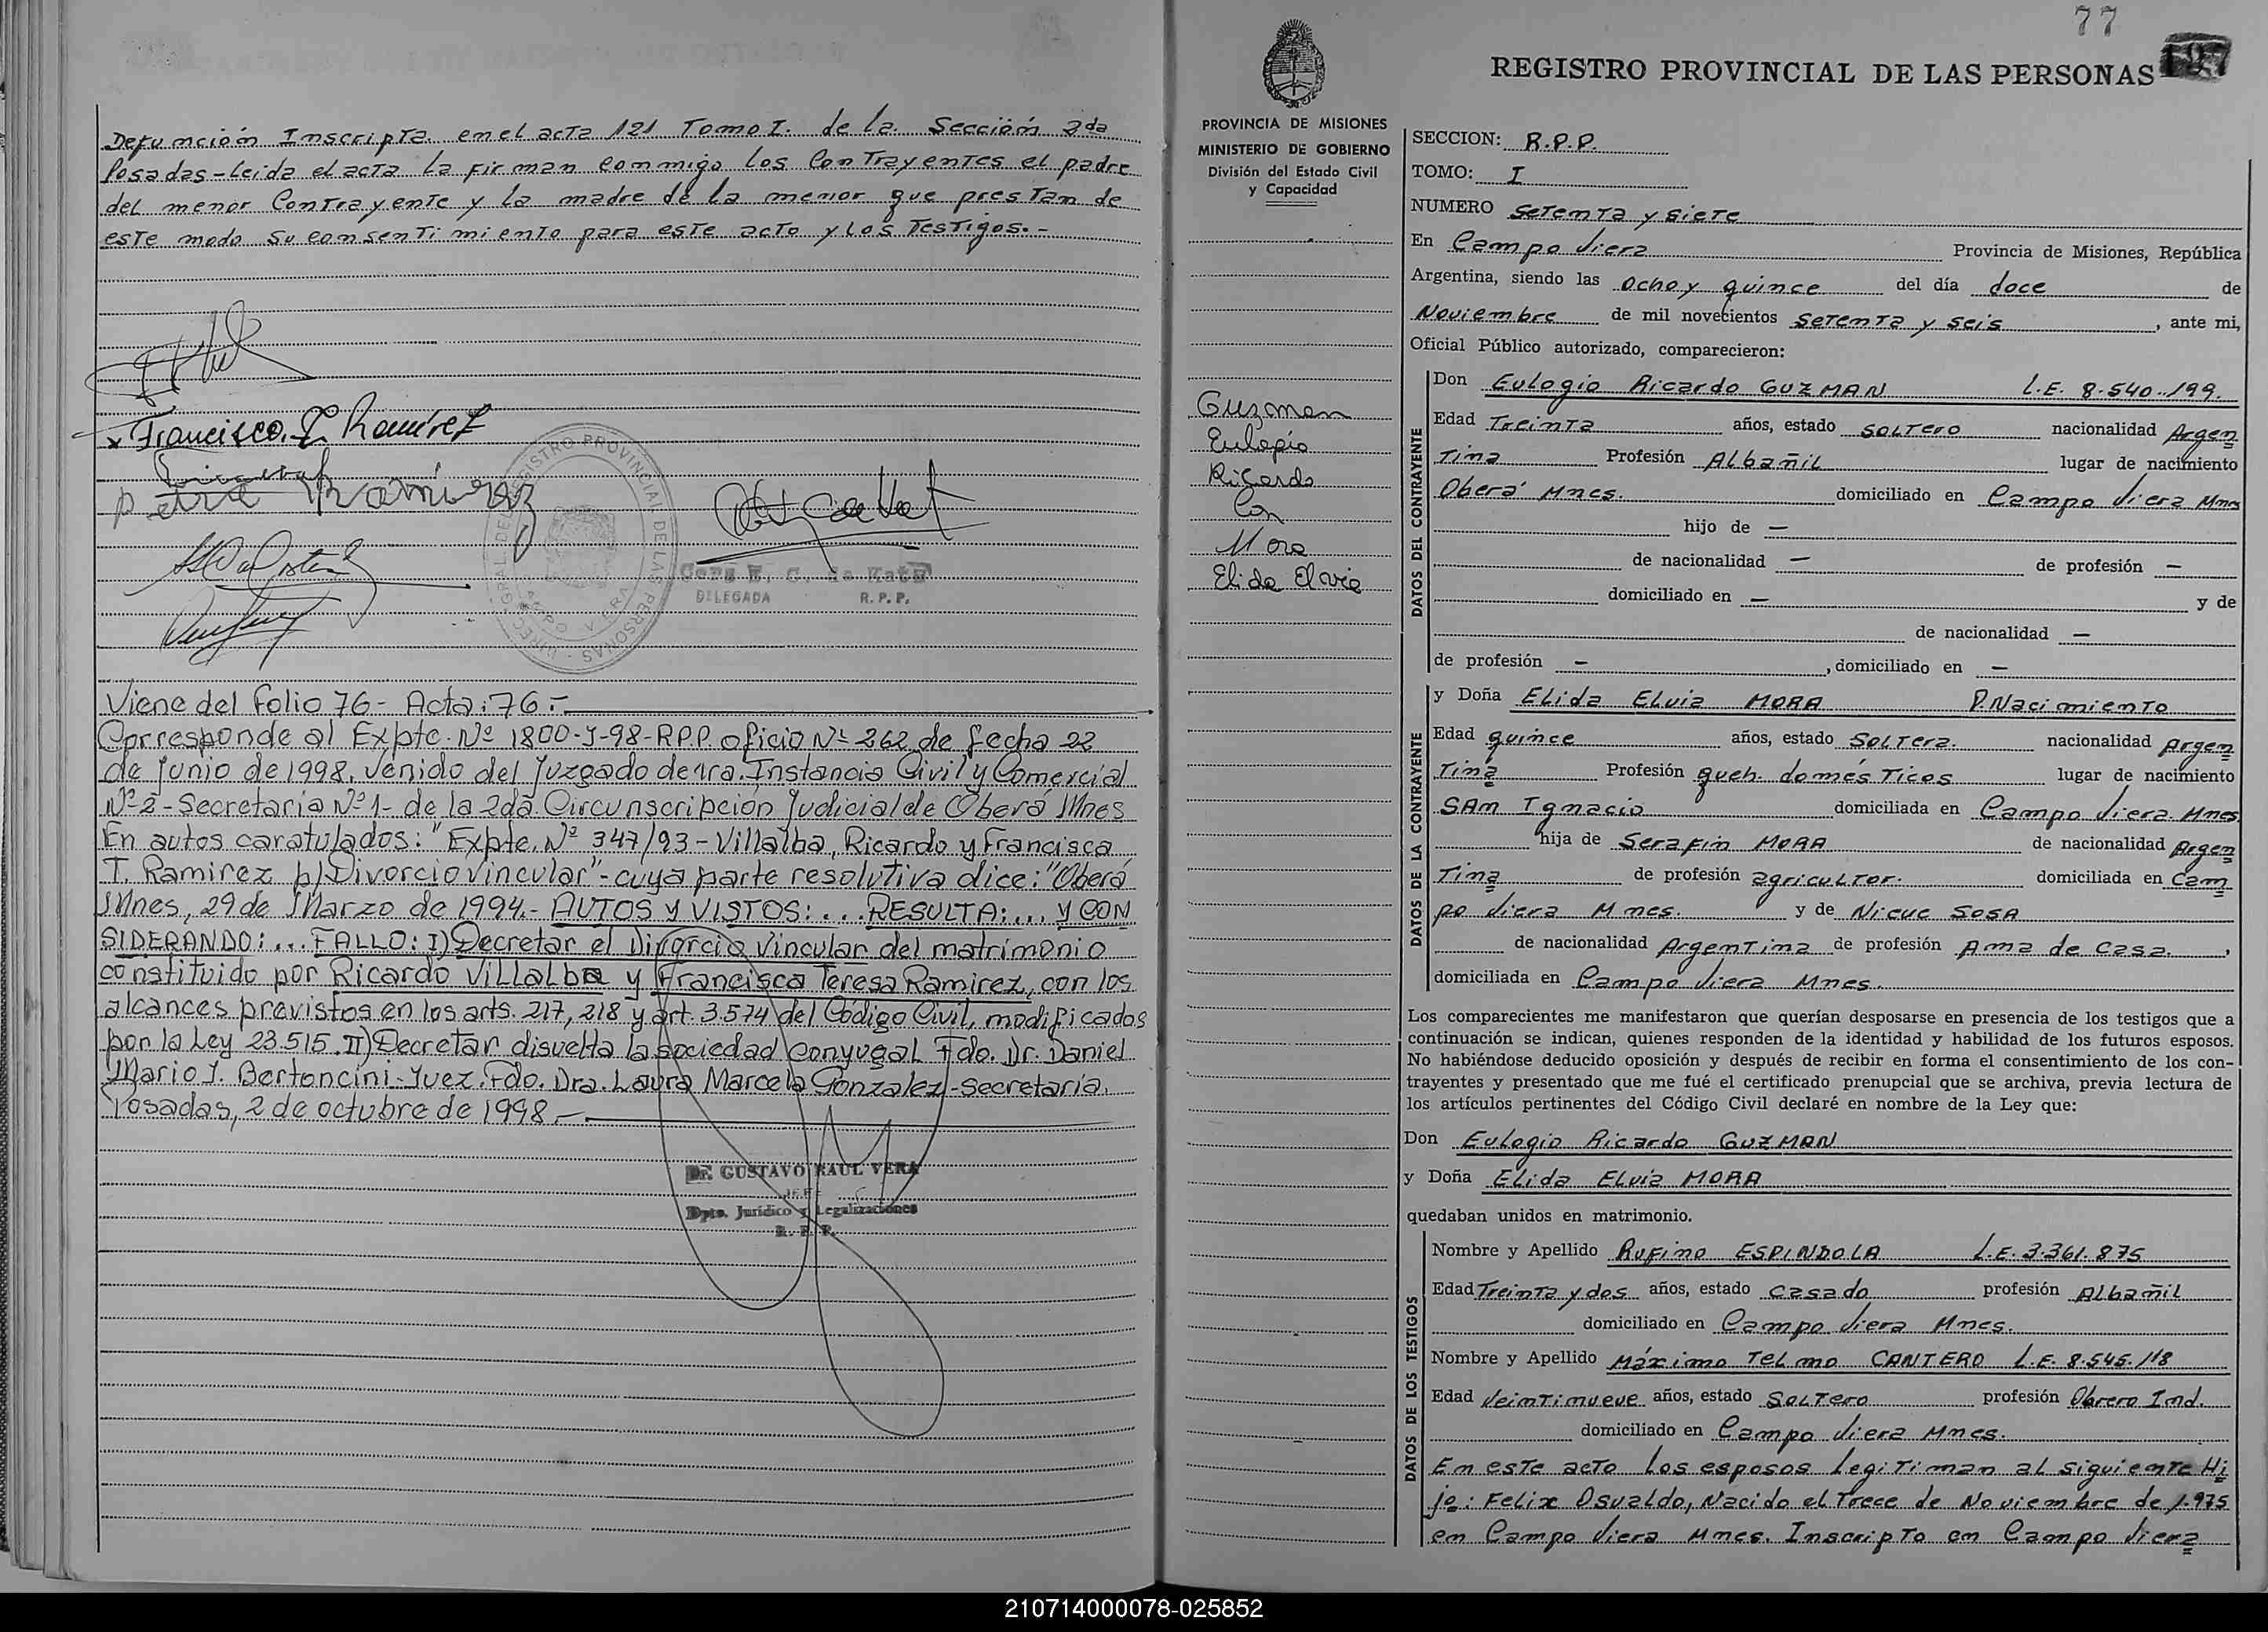 Defunción Inscripta en el acta 121 Tomo I. de la Sección 2da
Posadas-Leida el acta la firman conmigo los Contrayentes el padre
del menor Contrayente y la madre de la menor que prestan de
este modo su consentimiento para este acto y los Testigos.-
x Francisca. T. Ramírez
Ramirez
REGISTRO PROVINCIAL DE LAS PERSONAS
Cora E. C. de Katz
DELEGADA R. P. P.
Viene del Folio 76- Acta: 76.-
Corresponde al Expte. Nº 1800-J-98-R.P.P. oficio Nº 262 de fecha 22
de Junio de 1998, venido del Juzgado de 1ra. Instancia Civil y Comercial
Nº 2-Secretaría Nº 1- de la 2da. Circunscripción Judicial de Oberá Mnes
En autos caratulados: "Expte. Nº 347/93-Villalba, Ricardo y Francisca
T. Ramirez p/Divorcio vincular"-cuya parte resolutiva dice: "Oberá
Mnes, 29 de Marzo de 1994.- AUTOS Y VISTOS: ... RESULTA: ... Y CON
SIDERANDO: ... FALLO: I) Decretar el Divorcio Vincular del matrimonio
constituido por Ricardo Villalba y Francisca Teresa Ramirez, con los
alcances previstos en los arts. 217, 218 y art. 3.574 del Código Civil, modificados
por la Ley 23.515. II) Decretar disuelta la sociedad conyugal Fdo. Dr. Daniel
Mario J. Bertoncini-Juez. Fdo. Dra. Laura Marcela Gonzalez-Secretaría.
Posadas, 2 de octubre de 1998.-
Dr. GUSTAVO RAUL VERA
JEFE
Dpto. Jurídico y Legalizaciones
R. P. P.
77
REGISTRO PROVINCIAL DE LAS PERSONAS 197
PROVINCIA DE MISIONES
MINISTERIO DE GOBIERNO
División del Estado Civil
y Capacidad
Guzman
Eulogio
Ricardo
Con
Mora
Elida Elvia
SECCION: R.P.P.
TOMO: I
NUMERO Setenta y Siete
En Campo Viera Provincia de Misiones, República
Argentina, siendo las Ocho y quince del día doce de
Noviembre de mil novecientos Setenta y seis, ante mi,
Oficial Público autorizado, comparecieron:
DATOS DEL CONTRAYENTE
Don Eulogio Ricardo GUZMAN L.E. 8.540.199.
Edad Treinta años, estado soltero nacionalidad Argen
tina Profesión Albañil lugar de nacimiento
Oberá Mnes. domiciliado en Campo Viera Mnes
hijo de —
de nacionalidad — de profesión —
domiciliado en — y de
de nacionalidad —
de profesión — , domiciliado en —
DATOS DE LA CONTRAYENTE
y Doña Elida Elvia MORA P. Nacimiento
Edad quince años, estado Soltera. nacionalidad Argen
Tina Profesión queh. domésticos lugar de nacimiento
SAn Ignacio domiciliada en Campo Viera Mnes.
hija de Serafin MORA de nacionalidad Argen
Tina de profesión agricultor. domiciliada en Cam
po Viera Mnes. y de Nieve SOSA
de nacionalidad Argentina de profesión Ama de Casa. ,
domiciliada en Campo Viera Mnes.
Los comparecientes me manifestaron que querían desposarse en presencia de los testigos que a
continuación se indican, quienes responden de la identidad y habilidad de los futuros esposos.
No habiéndose deducido oposición y después de recibir en forma el consentimiento de los con-
trayentes y presentado que me fué el certificado prenupcial que se archiva, previa lectura de
los artículos pertinentes del Código Civil declaré en nombre de la Ley que:
Don Eulogio Ricardo GUZMAN
y Doña Elida Elvia MORA
quedaban unidos en matrimonio.
DATOS DE LOS TESTIGOS
Nombre y Apellido Rufino ESPINDOLA L.E. 3.361.875
Edad Treinta y dos años, estado Casado profesión Albañil
domiciliado en Campo Viera Mnes.
Nombre y Apellido Máximo Telmo CANTERO L.E. 8.545.118
Edad Veintinueve años, estado Soltero profesión Obrero Ind.
domiciliado en Campo Viera Mnes.
En este acto los esposos legitiman al siguiente Hi
jo: Felix Osvaldo, Nacido el Trece de Noviembre de 1.975
en Campo Viera Mnes. Inscripto en Campo Viera
210714000078-025852